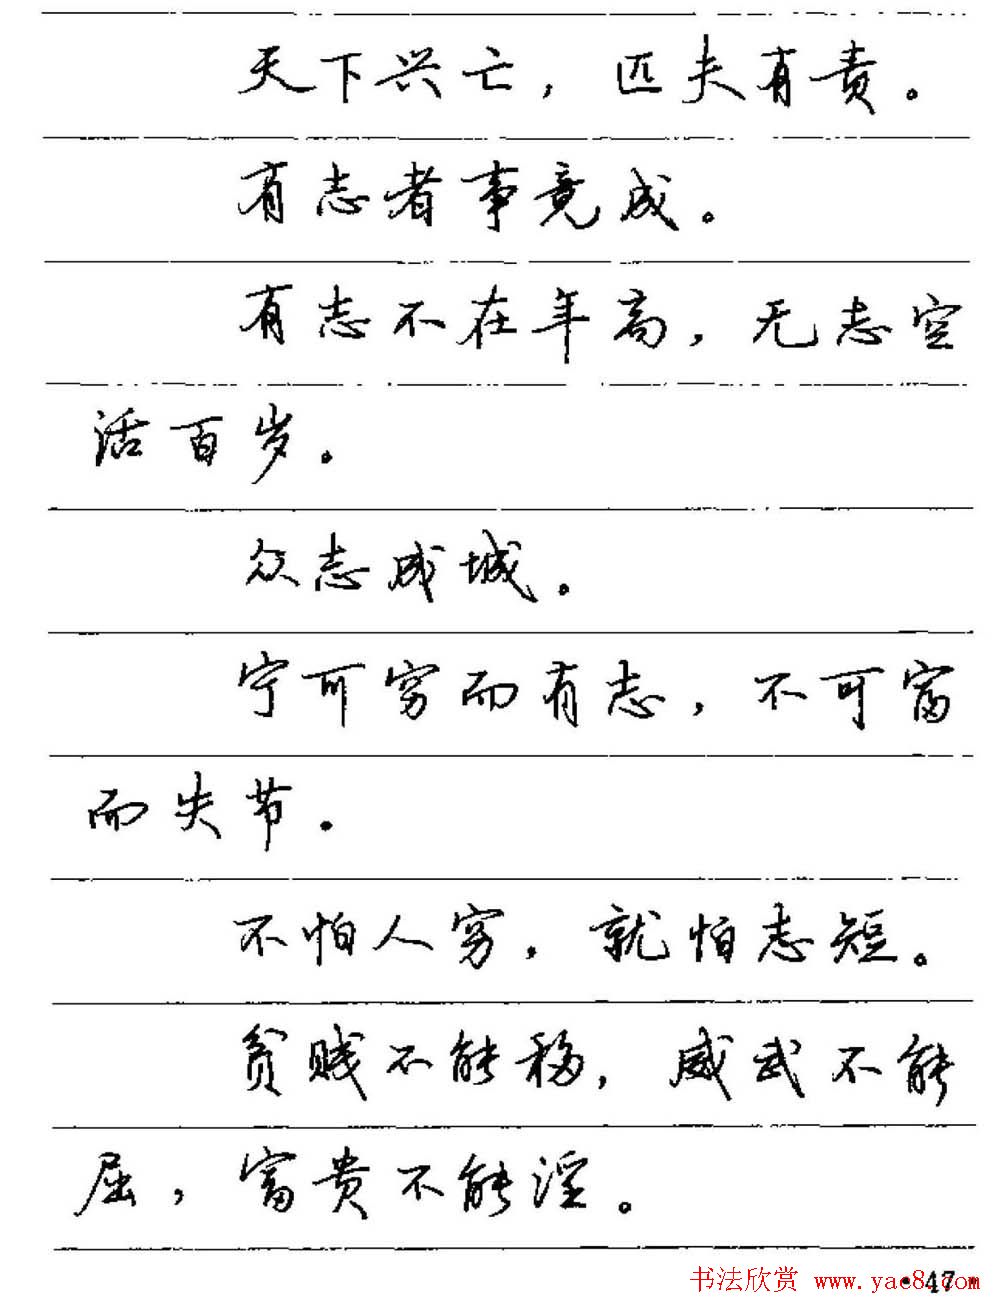 天下兴亡，匹夫有责。
有志者事竟成。
有志不在年高，无志空
活百岁。
众志成城。
宁可穷而有志，不可富
而失节。
不怕人穷，就怕志短。
贫贱不能移，威武不能
屈，富贵不能淫。
·47·
书法欣赏 www.yac8.com